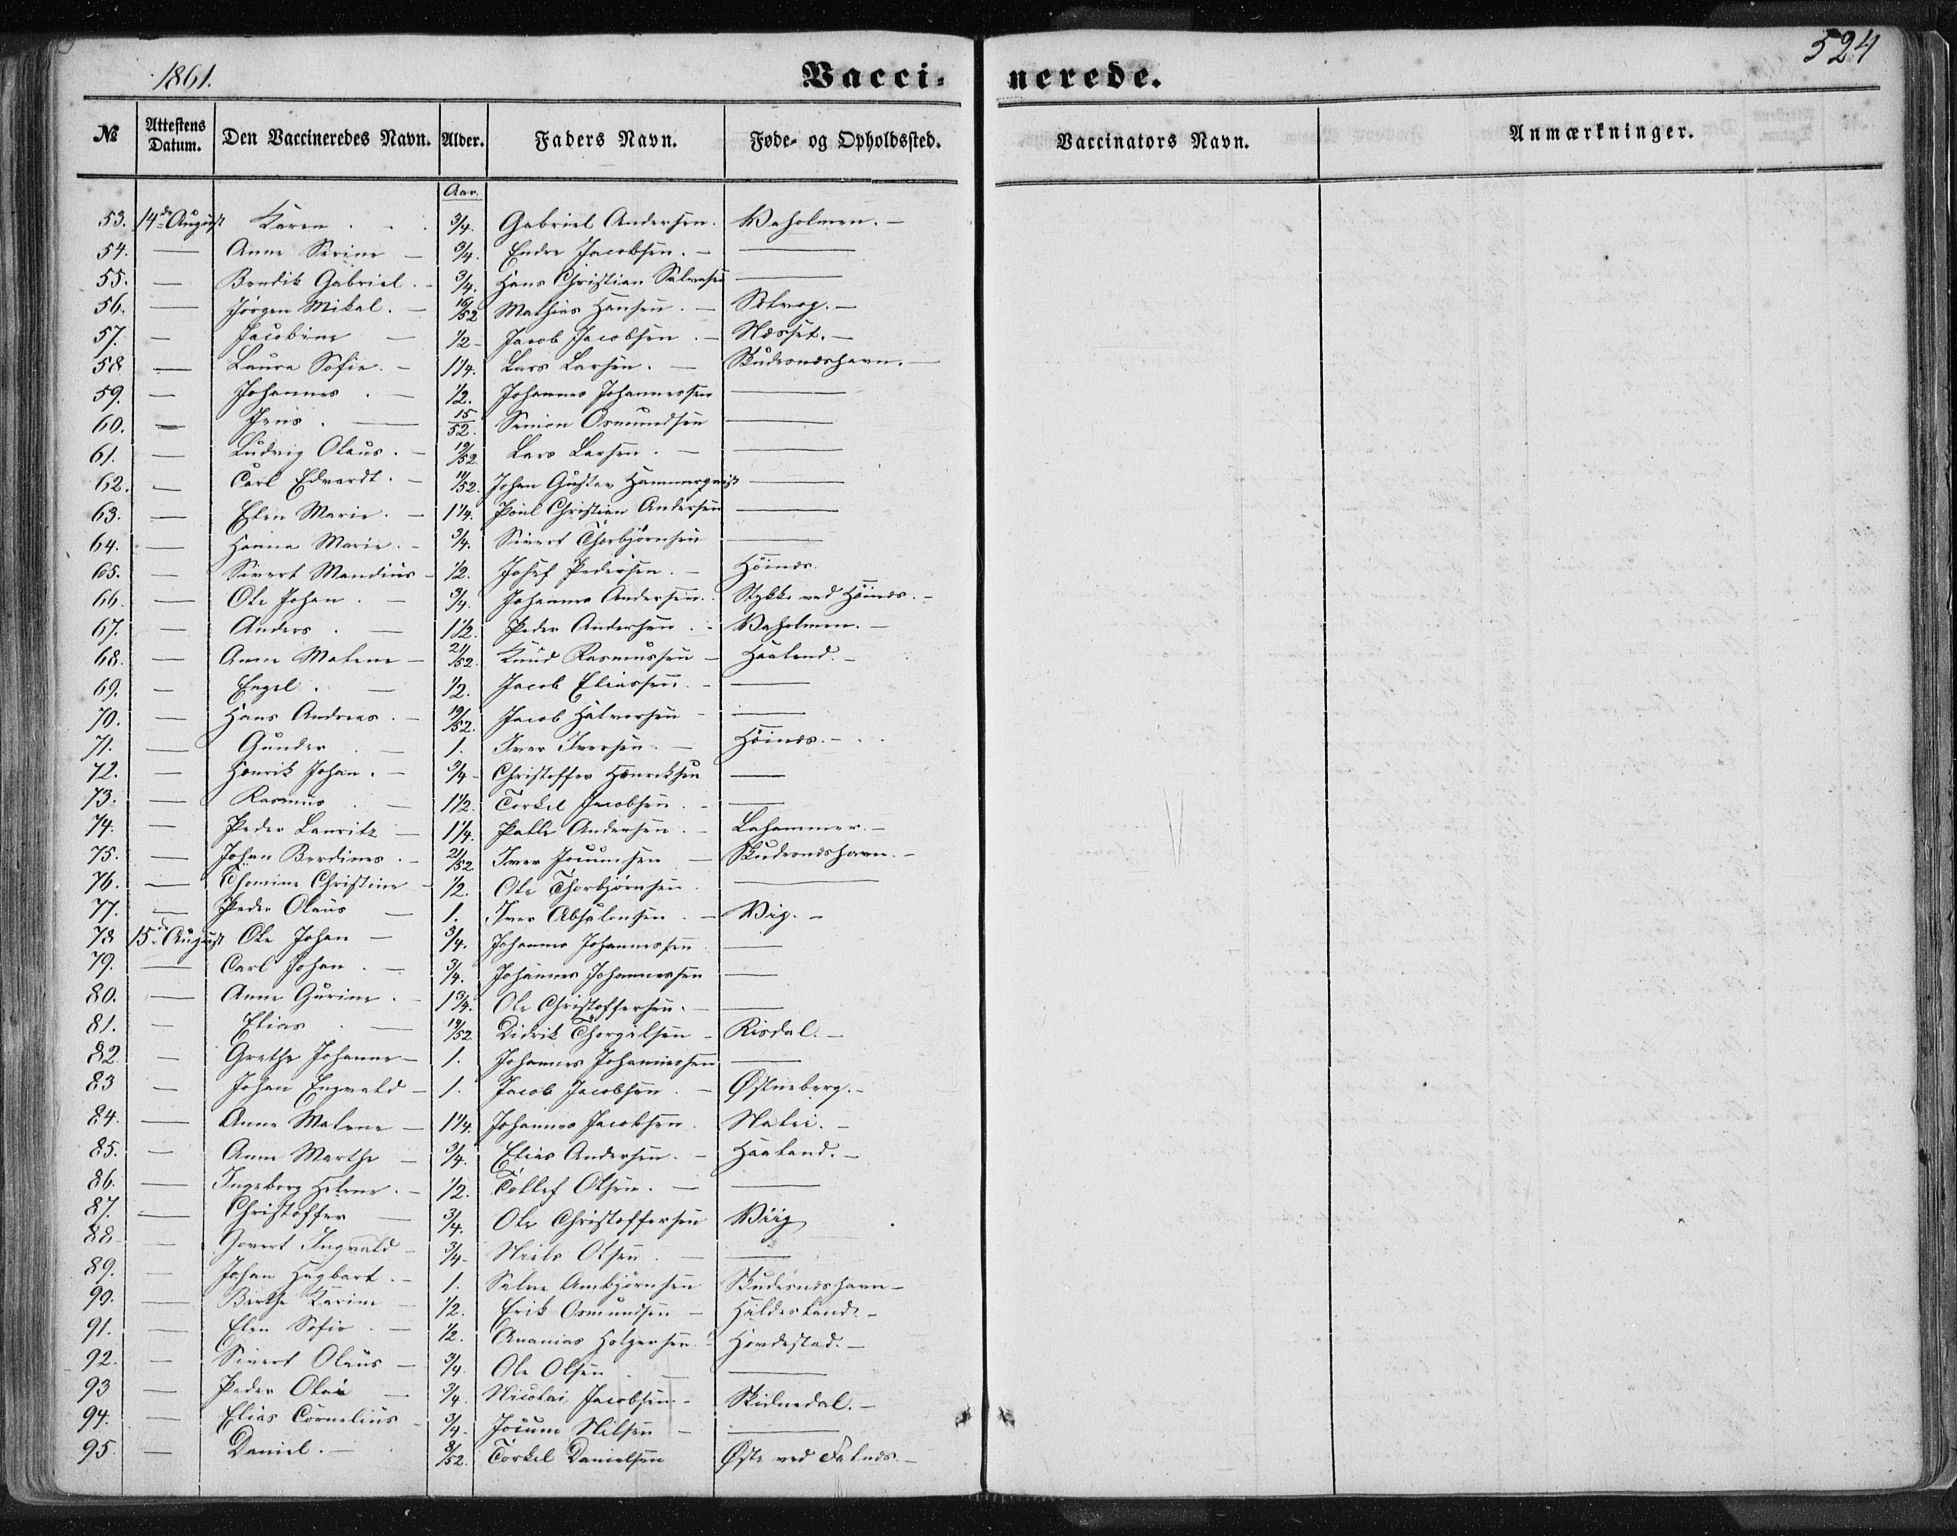 1861.
Vacci-
nerede.
524
№ Attestens Datum. Den Vaccineredes Navn. Alder. Faders Navn. Føde- og Opholdssted. Vaccinators Navn. Anmærkninger.
Aar.
53. 14de August Karen . . . 3/4. Gabriel Andersen. Vaholmen. —
54. — Anne Serine — 3/4. Endre Jacobsen. — —
55. — Bendik Gabriel. - 3/4. Hans Christian —
56. — Jørgen Mikal. — 16/52 Mathias Hansen. — Sølvog. —
57. — Jacobine — 1/2 - Jacob Jacobsen. — Næsset. —
58 — Laura Sofie. — 1 1/4. Lars Larsen. — Skudesnæshavn. —
59. — Johannes . — 1/2. Johannes Johannessen —
60. — Jens . — 15/52. Simon Osmundsen —
61. — Ludvig Olaus. — 19/52. Lars Larsen. — —
62. — Carl Edvardt. — 11/52. Johan Gustav Hammerqvist —
63. — Elen Marie. — 1 1/4. Poul Christian Andersen —
64. — Hanna Marie. - 3/4. Sivert Thorbjørnsen —
65. — Sivert Mandius - 1/2. Josef Pedersen. — Høinæs.
66. — Ole Johan. — 3/4. Johannes Andersen. Stykke ved Høinæs. —
67. — Anders . — 1 1/2. Peder Andersen. - Vaholmen. —
68. — Anne Malene — 21/52. Knud Rasmussen — Haaland. —
69. — Engel. — 1/2. Jacob Eliassen. - —
70. — Hans Andreas. - 19/52. Jacob Halvorsen - —
71. — Gunder . — 1. Iver Iversen. — Høinæs. -
72. — Henrik Johan. — 3/4 - Christoffer Henriksen —
73. — Rasmus . — 1 1/2. Torkel Jacobsen. - —
74. — Peder Lauritz — 1 1/4. Palle Andersen. - Lahammer. —
75. — Johan Berdines. - 21/52 Iver Jocumsen — Skudesnæshavn. —
76. — Thomine Christine - 1/2. Ole Thorbjørnsen —
77. — Peder Olaus — 1. Iver Absalonsen. — Vig. —
78 15de August Ole Johan — 3/4. Johannes Johannessen —
79. — Carl Johan. — 3/4. Johannes Johannessen —
80. — Anne Gurine. - 1 3/4. Ole Christoffersen. —
81. — Elias . — 19/52 Didrik - Risdal. —
82 — Grethe Johanne — 1. Johannes Johannessen —
83 — Johan Engvald — 1. Jacob Jacobsen. — Østneberg. —
84. — Anne Malene — 1 1/4. Johannes Jacobsen. —
85. — Anne Marthe — 3/4. Elias Andersen. — Haaland. —
86. — Ingeborg Helene. — 1/2. Tollef Olsen. — —
87. — Christoffer — 3/4. Ole Christoffersen Viig
88 — Ingvald — 3/4 - Niels Olsen . — —
89. — Johan Hagbart. — 1. Salve Ambjørnsen Skudesnæshavn —
90. — Birthe Karine — 1/2. Erik Osmundsen — —
91. — Elen Sofie . — 1/2. Ananias Holgersen. - Hordestad. —
92. — Sivert Olaus — 3/4. Ole Olsen —
93 — Peder Olai — 3/4. Nicolai Jacobsen - —
94. — Elias Cornelius - 3/4 - Jocum Nilsen — —
95. — Daniel. — 8/52. Torkel Danielsen Øste ved Falnæs. —